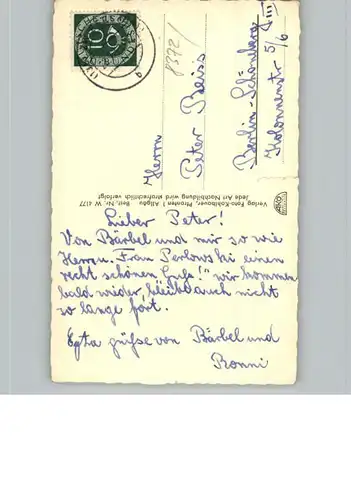 Lieber Peter!
Von Bärbel und mir so wie
Herrn. Frau Perlowski einen
recht schönen Gruß! wir kommen
bald wieder, bleibt auch nicht
so lange fort.
grüße von Bärbel und
Ronni
Herrn
Peter Beiss
Berlin-Schöneberg
Kolonnenstr 5/6 III
83721
10
Verlag Foto-Kohlbauer, Pfronten i. Allgäu Best. Nr. W 4177
Jede Art Nachbildung wird strafrechtlich verfolgt